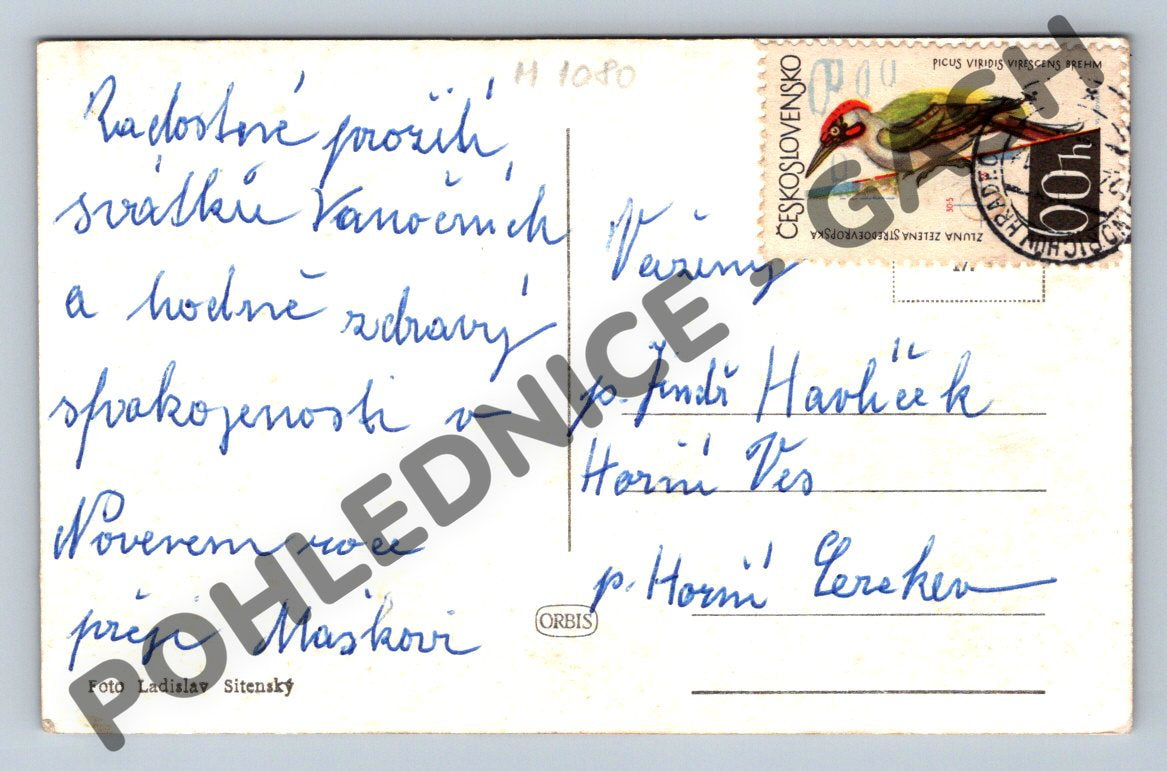 M 1080
Radostné prožití
svátků Vánočních
a hodně zdraví
spokojenosti v
Novém roce
přeji Maškovi
Foto Ladislav Sitenský
ORBIS
ČESKOSLOVENSKO
PICUS VIRIDIS VIRESCENS BREHM
ŽLUNA ZELENÁ STŘEDOEVROPSKÁ
60h
JINDŘICHŮV HRADEC
Vážený
p. Jindř Havlíček
Horní Ves
p. Horní Cerekev
POHLEDNICE - GASH